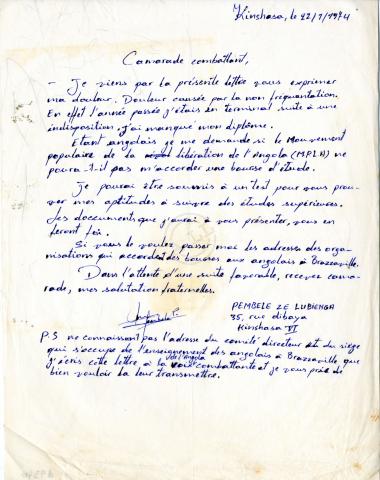 Kinshasa, le 22/1/1974
Camarade combattant,
- Je viens par la présente lettre vous exprimer
ma douleur. Douleur causée par la non fréquentation.
En effet l'année passée j'étais en terminal suite à une
indisposition, j'ai manqué mon diplôme.
Etant angolais je me demande si le Mouvement
populaire de la libération de l'Angola (MPLA) ne
poura-t-il pas m'accorder une bourse d'étude.
Je pourai être soumis à un test pour vous prou-
ver mes aptitudes à suivre des études supérieures.
Les documents que j'aurai à vous présenter, vous en
feront foi.
Si vous le voulez passer moi les adresses des orga-
nisations qui accordent des bourses aux angolais à Brazzaville.
Dans l'attente d'une suite favorable, recevez cama-
rade, mes salutation fraternelles.
PEMBELE ZE LUBIENGA
35, rue dibaya
Kinshasa VI
P.S ne connaissant pas l'adresse du comité directeur et du siège
qui s'occupe de l'enseignement des angolais à Brazzaville que
j'écris cette lettre à la voix de l'Angola combattante et je vous prie de
bien vouloir la leur transmettre.